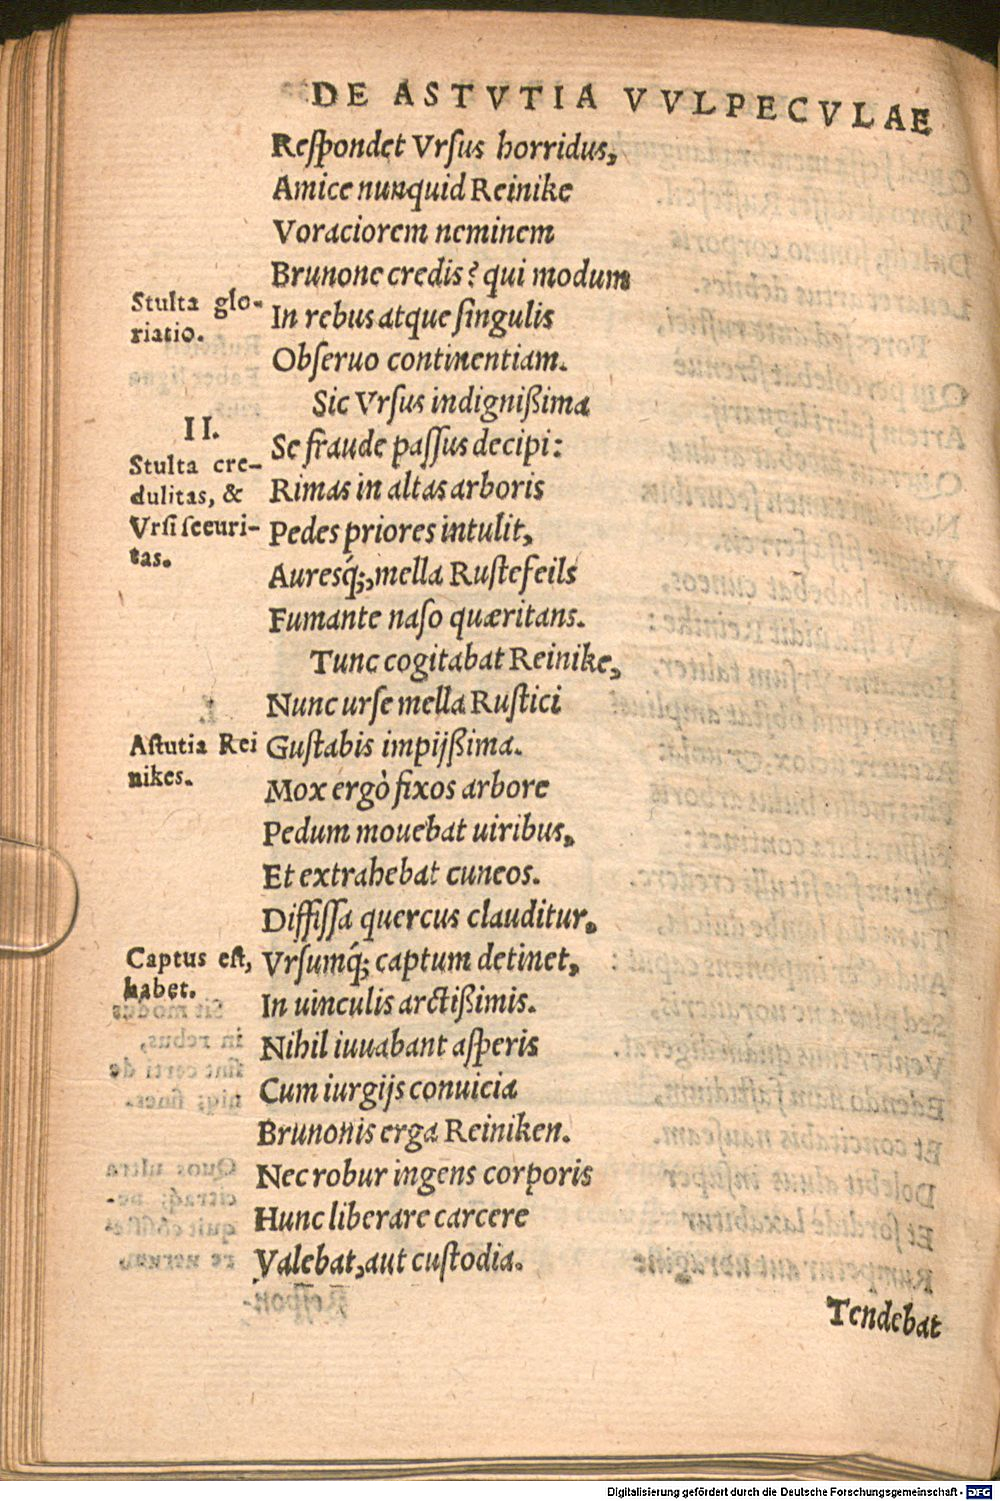 DE ASTVTIA VVLPECVLAE
Reſpondet Vrſus horridus,
Amice nunquid Reinike
Voraciorem neminem
Brunone credis? qui modum
Stulta glo-
riatio.
In rebus atque ſingulis
Obſeruo continentiam.
Sic Vrſus indignißima
II.
Stulta cre-
dulitas, &
Vrſi ſecuri-
tas.
Se fraude paſſus decipi:
Rimas in altas arboris
Pedes priores intulit,
Auresq́;, mella Ruſtefeils
Fumante naſo quæritans.
Tunc cogitabat Reinike,
Nunc urſe mella Ruſtici
Aſtutia Rei
nikes.
Guſtabis impijßima.
Mox ergò fixos arbore
Pedum mouebat uiribus,
Et extrahebat cuneos.
Diffiſſa quercus clauditur,
Captus eſt,
habet.
Vrſumq́; captum detinet,
In uinculis arctißimis.
Nihil iuuabant aſperis
Cum iurgijs conuicia
Brunonis erga Reiniken.
Nec robur ingens corporis
Hunc liberare carcere
Valebat, aut cuſtodia.
Tendebat
Digitalisierung gefördert durch die Deutsche Forschungsgemeinschaft - DFG